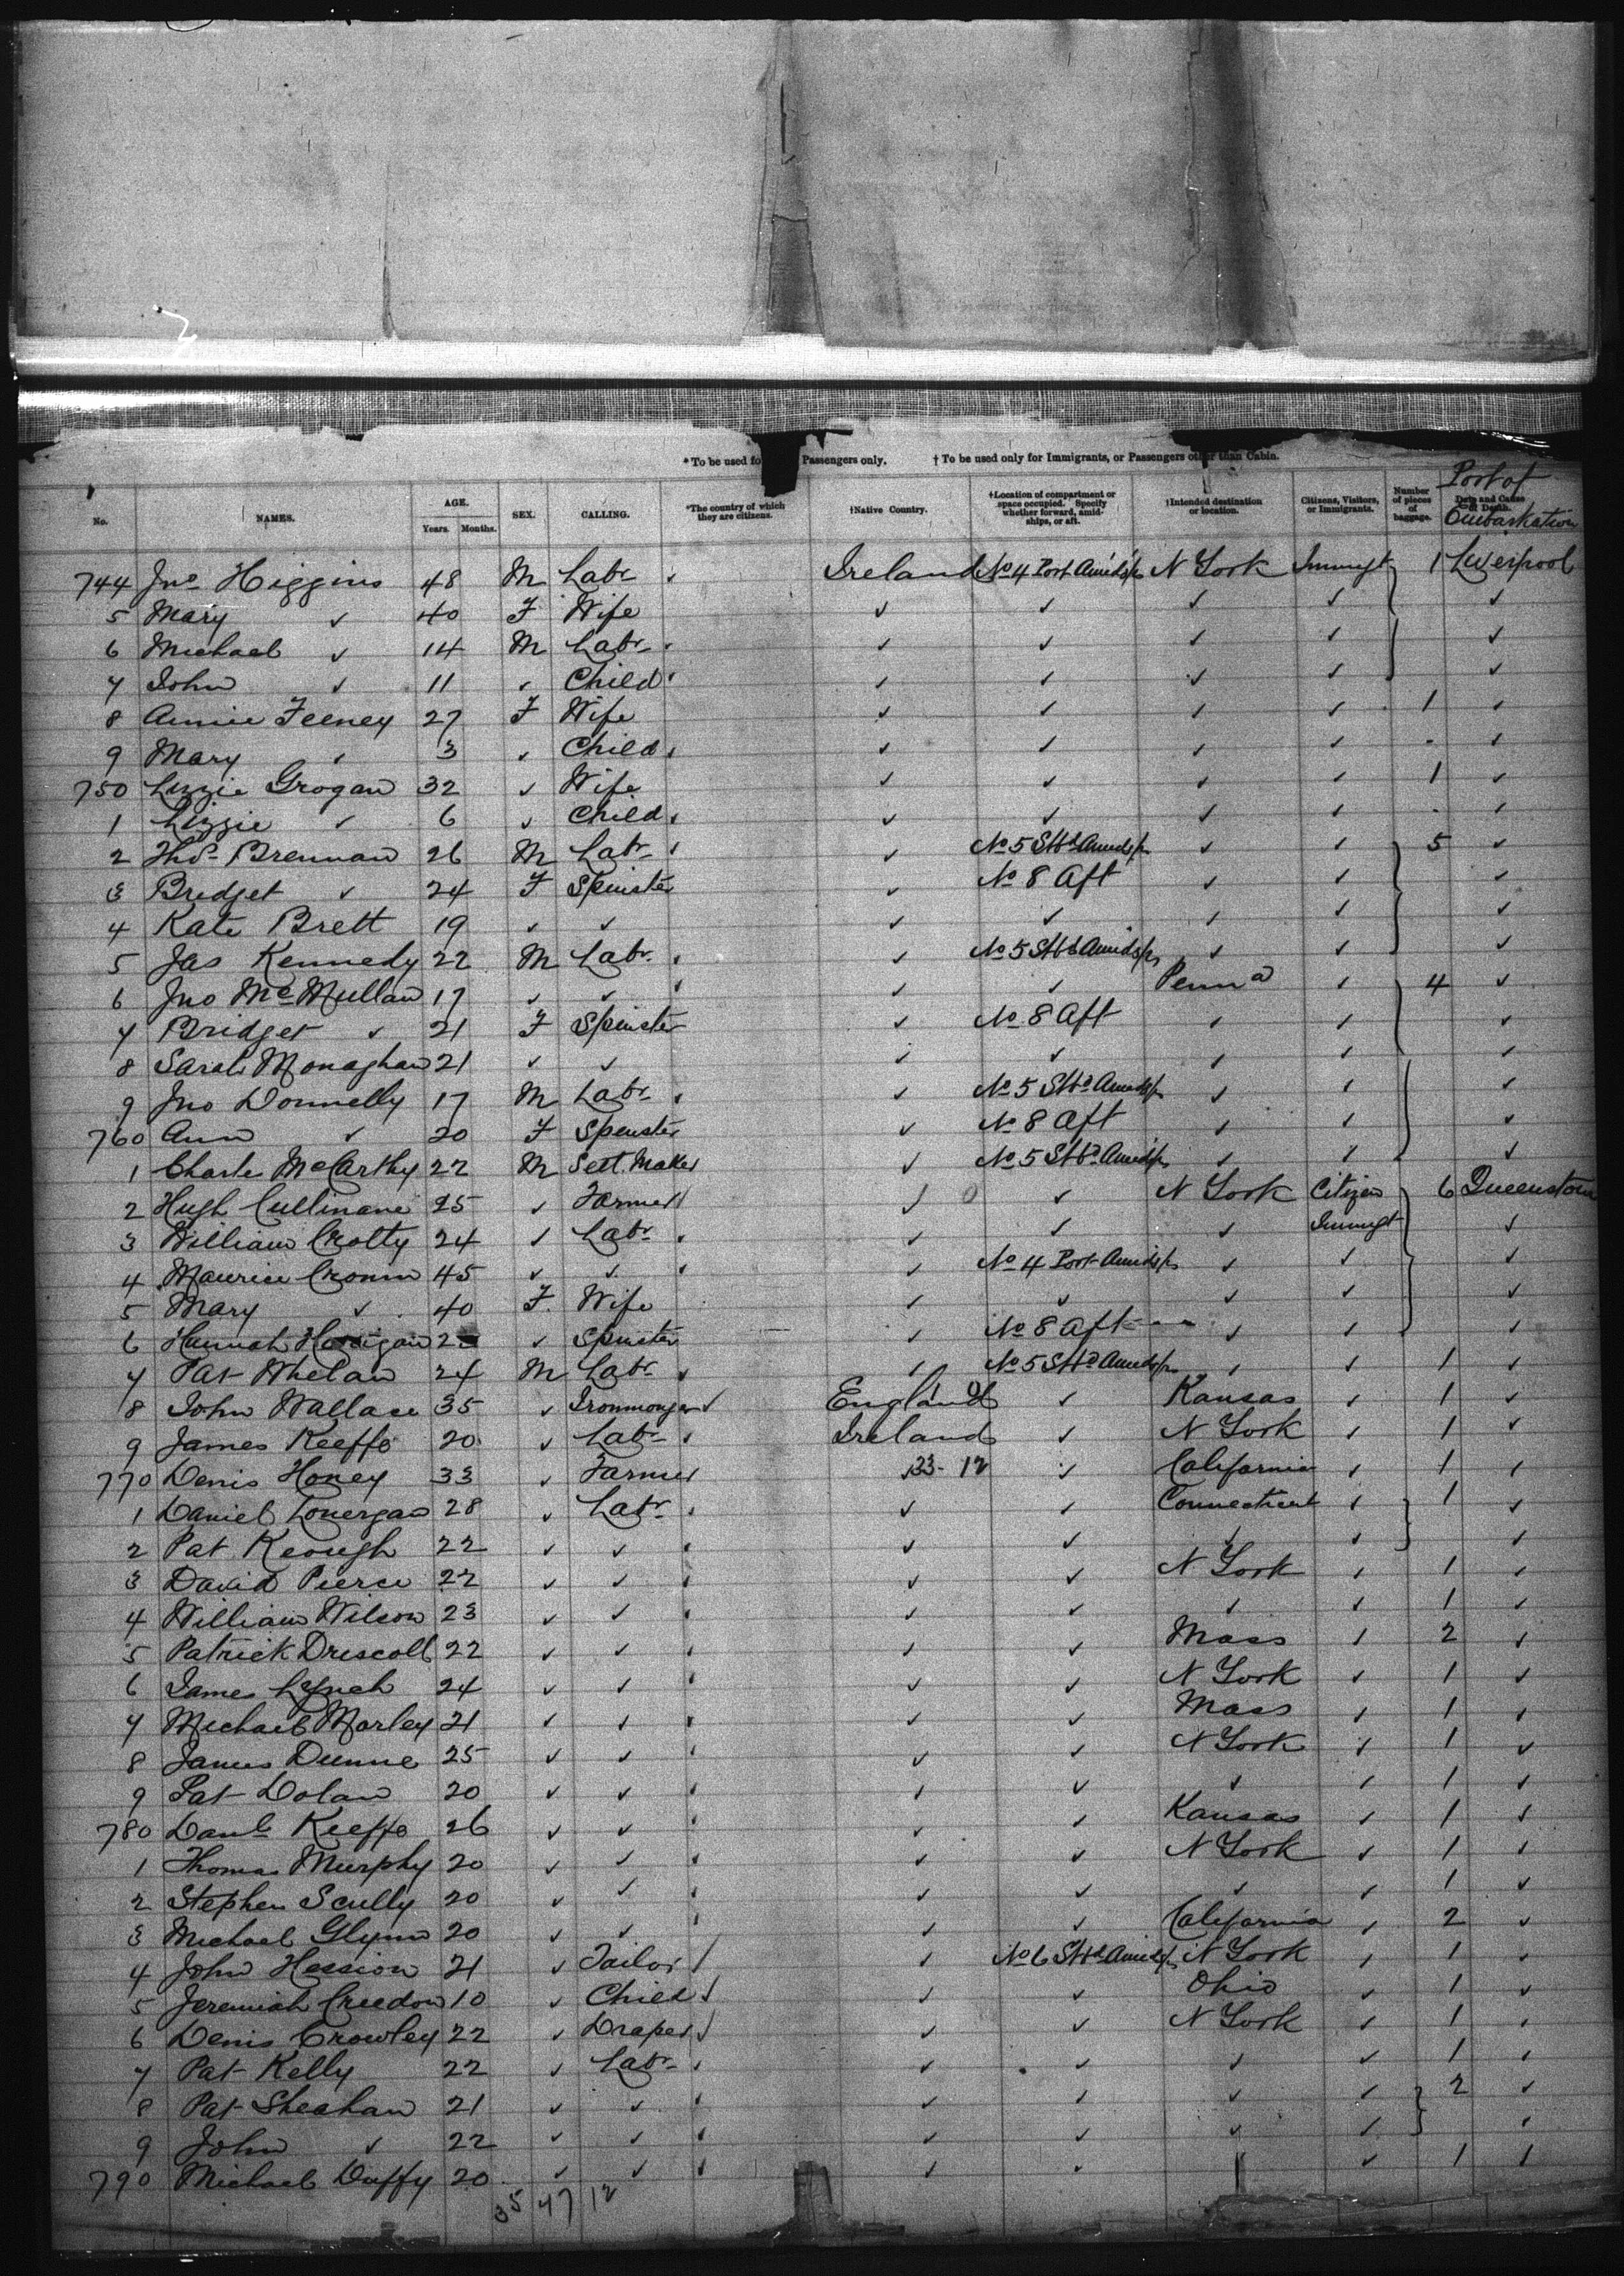 *To be used fo Passengers only. †To be used only for Immigrants, or Passengers other than Cabin.
Port of
No. NAMES. AGE. Years. Months. SEX. CALLING. *The country of which they are citizens. †Native Country. †Location of compartment or space occupied. Specify whether forward, amidships, or aft. †Intended destination or location. Citizens, Visitors, or Immigrants. Number of pieces of baggage. Date and Cause of Death. Embarkation
744 Jno Higgins 48 M Labr Ireland No 4 Port Amidsps N York Immigt 1 Liverpool
5 Mary ✓ 40 F Wife ✓ ✓ ✓ ✓ ✓
6 Michael ✓ 14 M Labr ✓ ✓ ✓ ✓ ✓
7 John ✓ 11 ✓ Child ✓ ✓ ✓ ✓ ✓
8 Annie Feeney 27 F Wife ✓ ✓ ✓ ✓ 1 ✓
9 Mary ✓ 3 ✓ Child ✓ ✓ ✓ ✓ ✓
750 Lizzie Grogan 32 ✓ Wife ✓ ✓ ✓ ✓ 1 ✓
1 Lizzie ✓ 6 ✓ Child ✓ ✓ ✓ ✓ ✓
2 Thos Brennan 26 M Labr ✓ No 5 Stbd Amidsps ✓ ✓ 5 ✓
3 Bridget ✓ 24 F Spinster ✓ No 8 Aft ✓ ✓ ✓
4 Kate Brett 19 ✓ ✓ ✓ ✓ ✓ ✓ ✓
5 Jas Kennedy 22 M Labr ✓ No 5 Stbd Amidsps ✓ ✓ ✓
6 Jno McMullan 17 ✓ ✓ ✓ ✓ Penna ✓ 4 ✓
7 Bridget ✓ 21 F Spinster ✓ No 8 Aft ✓ ✓ ✓
8 Sarah Monaghan 21 ✓ ✓ ✓ ✓ ✓ ✓ ✓
9 Jno Donnelly 17 M Labr ✓ No 5 Stbd Amidsps ✓ ✓ ✓
760 Ann ✓ 20 F Spinster ✓ No 8 Aft ✓ ✓ ✓
1 Charles McCarthy 22 M Sett Maker ✓ No 5 Stbd Amidsps ✓ ✓ ✓
2 Hugh Cullinane 25 ✓ Farmer ✓ 0 ✓ N York Citizen 6 Queenstown
3 William Crotty 24 ✓ Labr ✓ ✓ ✓ Immigt ✓
4 Maurice Cronin 45 ✓ ✓ ✓ No 4 Port Amidsps ✓ ✓ ✓
5 Mary ✓ 40 F. Wife ✓ ✓ ✓ ✓ ✓
6 Hannah 2 ✓ Spinster ✓ No 8 Aft ✓ ✓ ✓
7 Pat Whelan 24 M Labr ✓ No 5 Stbd Amidsps ✓ ✓ 1 ✓
8 John Wallace 35 ✓ Ironmonger England ✓ Kansas ✓ 1 ✓
9 James Keeffe 20 ✓ Labr Ireland ✓ N York ✓ 1 ✓
770 Denis Honey 33 ✓ Farmer 33-12 ✓ California ✓ 1 ✓
1 Daniel Lonergan 28 ✓ Labr ✓ ✓ Connecticut ✓ 1 ✓
2 Pat Keough 22 ✓ ✓ ✓ ✓ ✓ ✓ ✓
3 David Pierce 22 ✓ ✓ ✓ ✓ N York ✓ 1 ✓
4 William Wilson 23 ✓ ✓ ✓ ✓ ✓ ✓ 1 ✓
5 Patrick Driscoll 22 ✓ ✓ ✓ ✓ Mass ✓ 2 ✓
6 James Lynch 24 ✓ ✓ ✓ ✓ N York ✓ 1 ✓
7 Michael Morley 21 ✓ ✓ ✓ ✓ Mass ✓ 1 ✓
8 James Dunne 25 ✓ ✓ ✓ ✓ N York ✓ 1 ✓
9 Pat Dolan 20 ✓ ✓ ✓ ✓ ✓ ✓ 1 ✓
780 Danl Keeffe 26 ✓ ✓ ✓ ✓ Kansas ✓ 1 ✓
1 Thomas Murphy 20 ✓ ✓ ✓ ✓ N York ✓ 1 ✓
2 Stephen Scully 20 ✓ ✓ ✓ ✓ ✓ ✓ 1 ✓
3 Michael Glynn 20 ✓ ✓ ✓ ✓ California ✓ 2 ✓
4 John Hession 21 ✓ Tailor ✓ No 6 Stbd Amidsps N York ✓ 1 ✓
5 Jeremiah Creedon 10 ✓ Child ✓ ✓ Ohio ✓ 1 ✓
6 Denis Crowley 22 ✓ Draper ✓ ✓ N York ✓ 1 ✓
7 Pat Kelly 22 ✓ Labr ✓ ✓ ✓ ✓ 1 ✓
8 Pat Sheahan 21 ✓ ✓ ✓ ✓ ✓ ✓ 2 ✓
9 John ✓ 22 ✓ ✓ ✓ ✓ ✓ ✓ ✓
790 Michael Duffy 20 ✓ ✓ ✓ ✓ ✓ 1 ✓
35 47 12